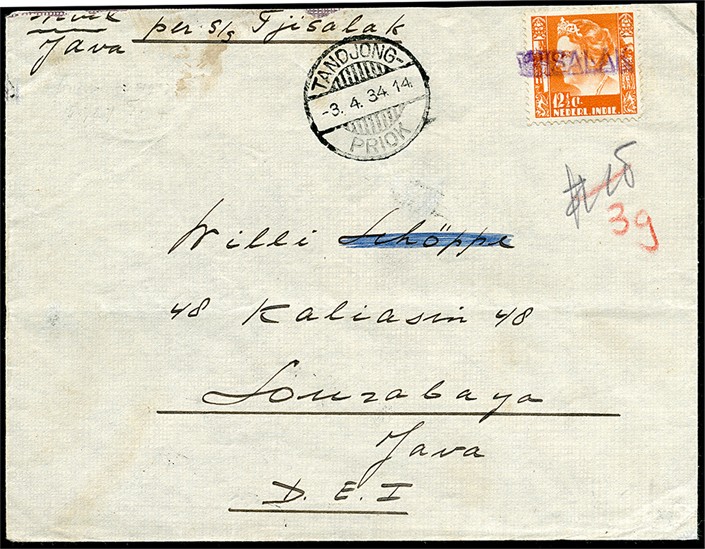 Java per s/s Tjisalak
TANDJONG-
-3. 4. 34. 14
PRIOK
TJISALAK
12½ c.
NEDERL. INDIE.
39
Willi Schöppe
48 Kaliasin 48
Sourabaya
Java
D. E. I